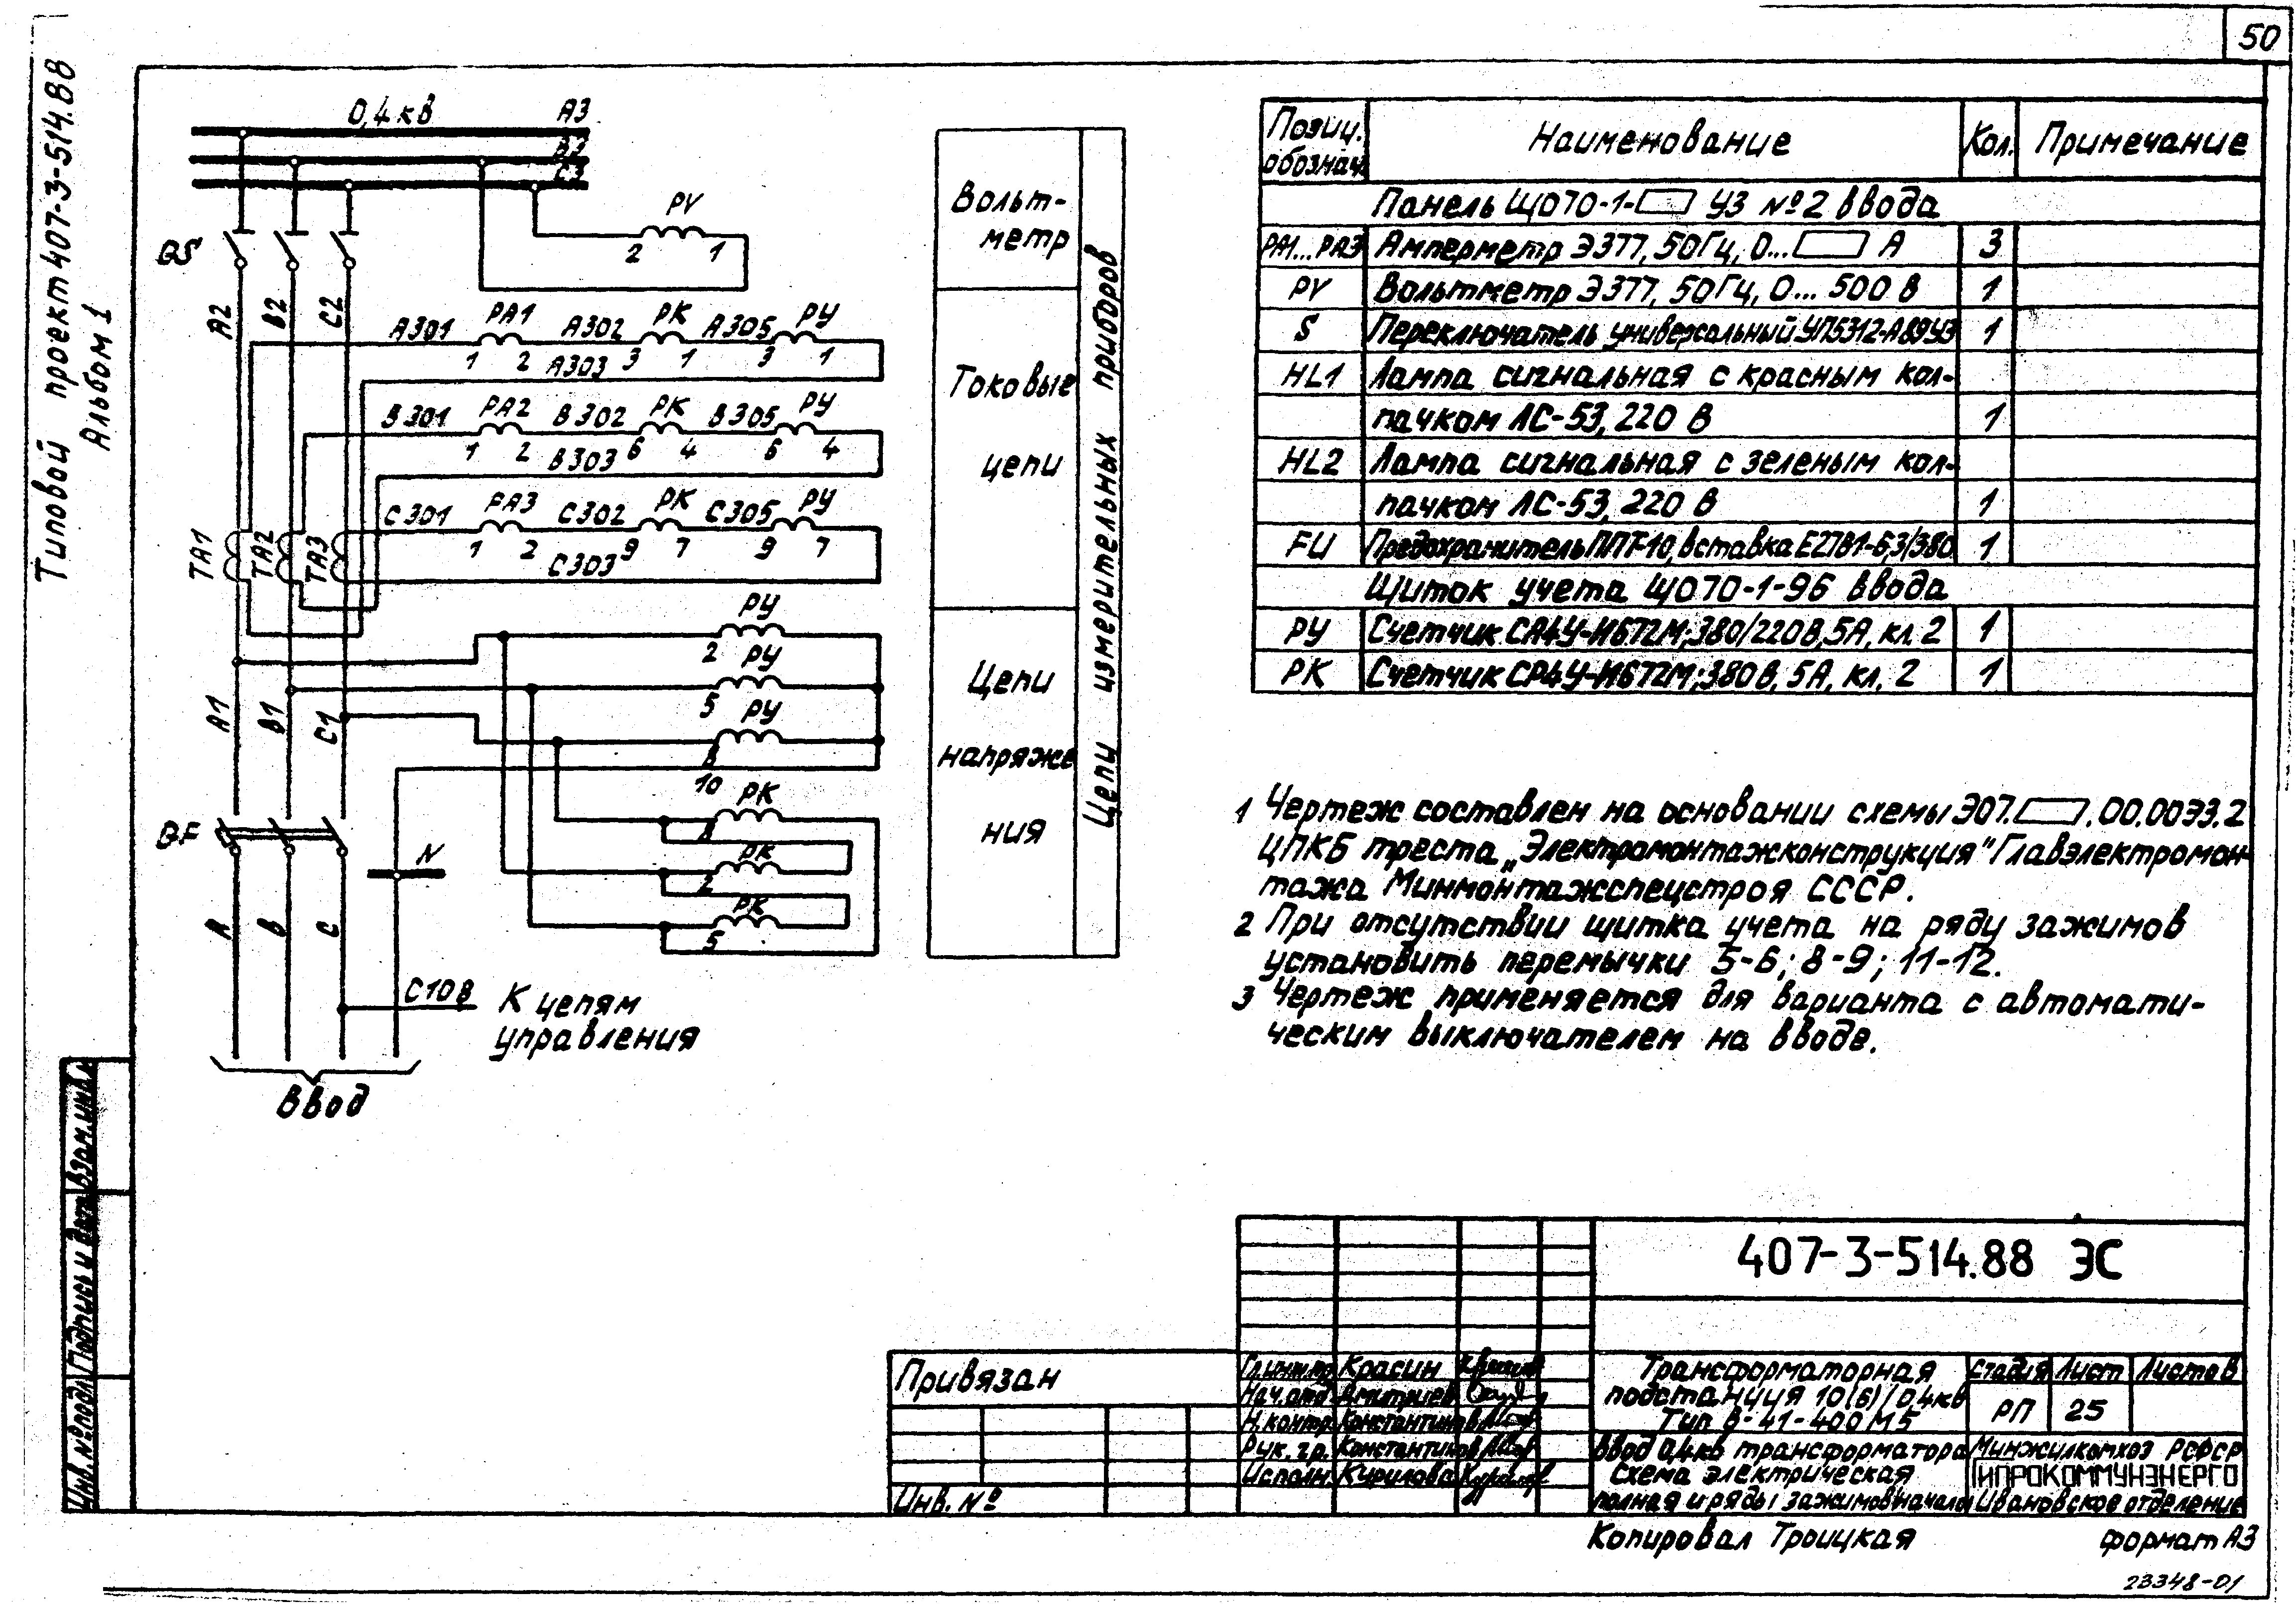 50
Типовой проект 407-3-514.88
Альбом 1
0,4 кВ
А3
В3
С3
QS
PV
2 1
А2 В2 С2
А301 PA1 А302 PK А305 РУ
1 2 А303 3 1 3 1
В301 PA2 В302 PK В305 РУ
1 2 В303 6 4 6 4
С301 PA3 С302 PK С305 РУ
1 2 С303 9 7 9 7
ТА1 ТА2 ТА3
РУ
2
РУ
5
РУ
8
10
А1 В1 С1
РК
8
РК
2
РК
5
QF
N
А В С
С108
К цепям
управления
Ввод
Вольт-
метр
Токовые
цепи
Цепи
напряже
ния
Цепи измерительных приборов
Позиц. обознач. Наименование Кол. Примечание
Панель ЩО70-1-▭ У3 №2 ввода
PA1...PA3 Амперметр Э377, 50Гц, 0...▭ А 3
PV Вольтметр Э377, 50Гц, 0... 500 В 1
S Переключатель универсальный УП5312-А89У3 1
HL1 Лампа сигнальная с красным кол-
пачком ЛС-53, 220 В 1
HL2 Лампа сигнальная с зеленым кол-
пачком ЛС-53, 220 В 1
FU Предохранитель ППТ-10, вставка Е27В1-6,3/380 1
Щиток учета ЩО70-1-96 ввода
РУ Счетчик СА4У-И672М; 380/220В, 5А, кл. 2 1
РК Счетчик СР4У-И672М; 380 В, 5А, кл. 2 1
1 Чертеж составлен на основании схемы Э07.▭.00.00Э3.2
ЦПКБ треста „Электромонтажконструкция" Главэлектромон-
тажа Минмонтажспецстроя СССР.
2 При отсутствии щитка учета на ряду зажимов
установить перемычки 5-6; 8-9; 11-12.
3 Чертеж применяется для варианта с автомати-
ческим выключателем на вводе.
Инв. № подл. Подпись и дата Взам. инв. №
407-3-514.88 ЭС
Привязан
Инв. №
Гл. инж. пр. Красин
Нач. отд. Дмитриев
Н. контр. Константинов
Рук. гр. Константинов
Исполн. Курилова
Трансформаторная
подстанция 10(6)/0,4кВ
Тип В-41-400 М5
Стадия Лист Листов
РП 25
Ввод 0,4кВ трансформатора
Схема электрическая
полная и ряды зажимов начало
Минжилкомхоз РСФСР
ГИПРОКОММУНЭНЕРГО
Ивановское отделение
Копировал Троицкая
формат А3
23348-01